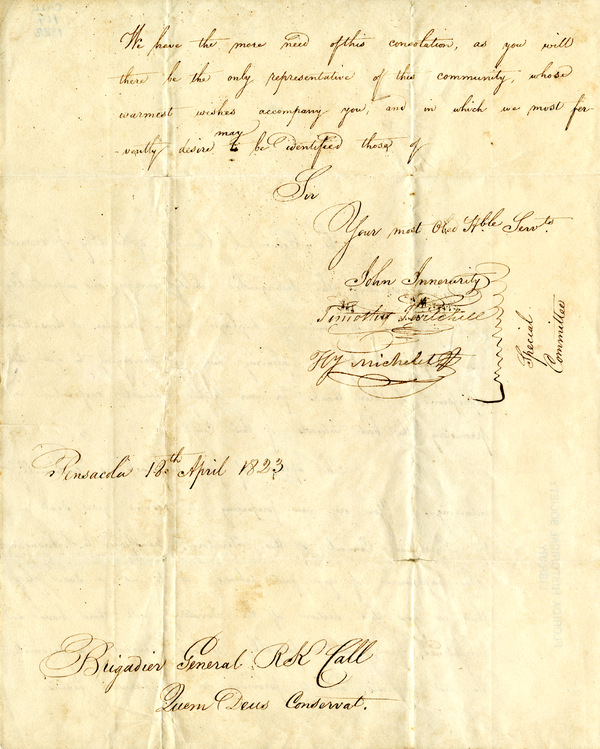 We have the more need of this consolation, as you will
there be the only representative of this community, whose
warmest wishes accompany you, and in which we most fer-
-vently desire may to be identified those of
Sir
Your most Obed Hble Servts.
John Innerarity
Timothy Twitchell
Hy Michelet
Special
Committee
Pensacola 18th April 1823
Brigadier General RK Call
Quem Deus Conservat.